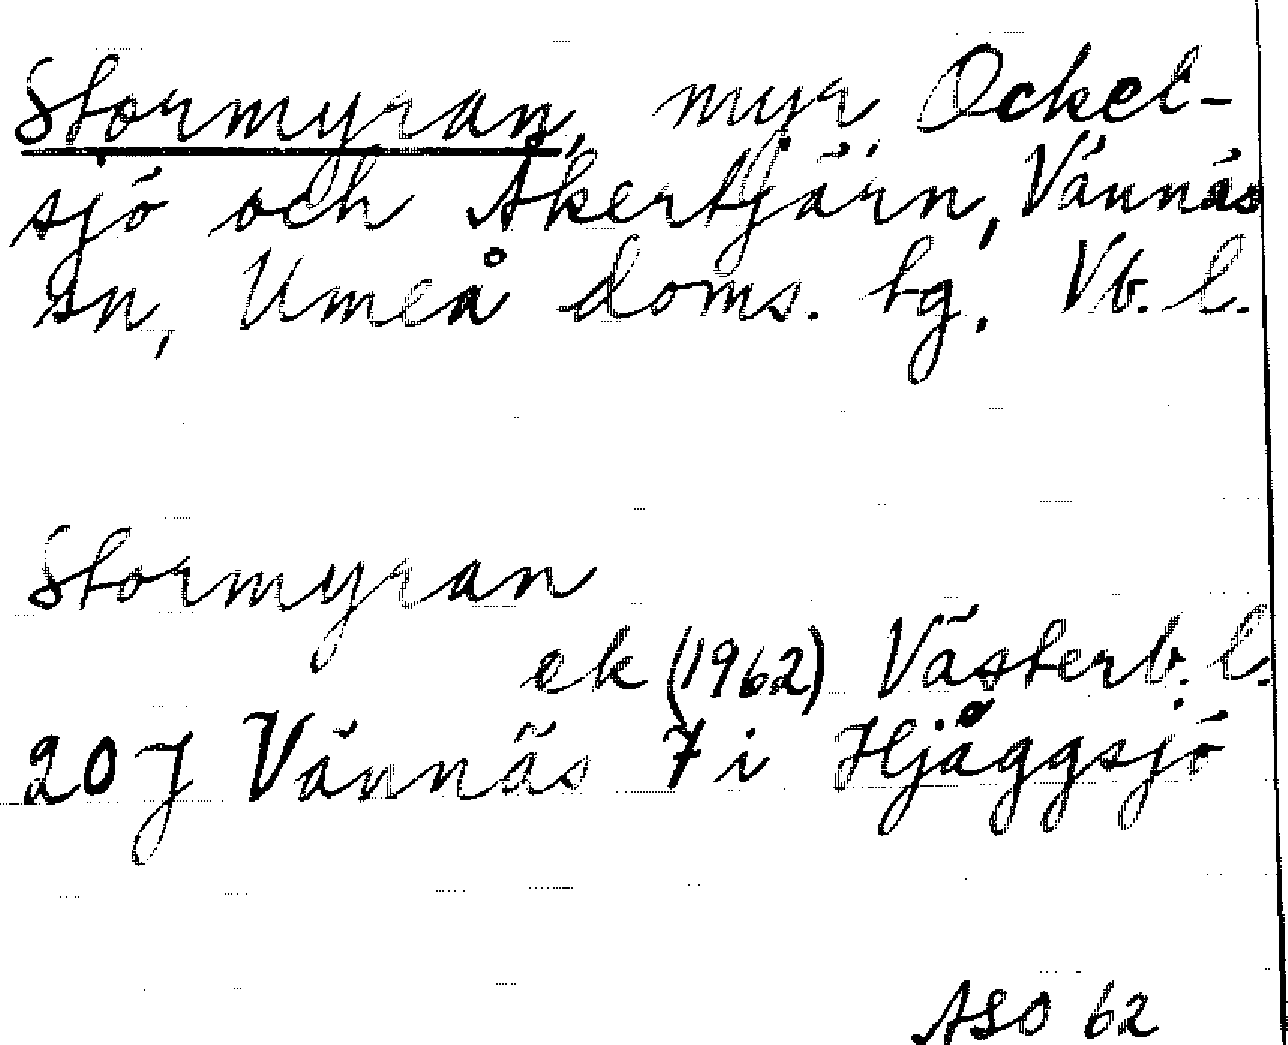 Stormyran, myr, Ockel-
sjö och Åkertjärn, Vännäs
sn, Umeå doms. tg. Vb. l.
Stormyran
ek (1962) Västerb. l.
20 J Vännäs 7 i Hjåggsjö
ASO 62